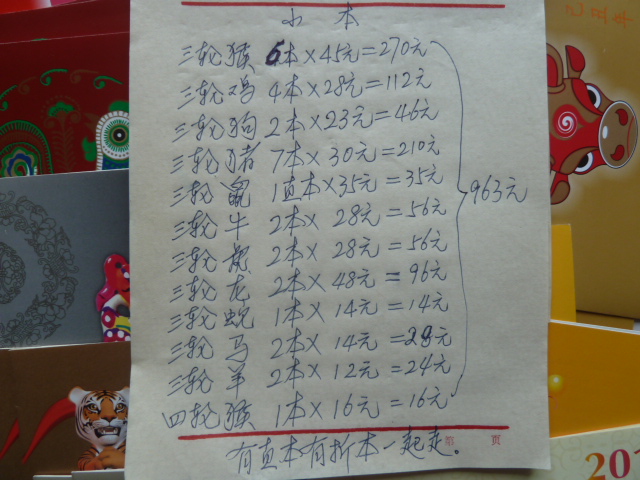 小本
三轮猴 6本×45元=270元
三轮鸡 4本×28元=112元
三轮狗 2本×23元=46元
三轮猪 7本×30元=210元
三轮鼠 1直本×35元=35元
三轮牛 2本×28元=56元
三轮虎 2本×28元=56元
三轮龙 2本×48元=96元
三轮蛇 1本×14元=14元
三轮马 2本×14元=28元
三轮羊 2本×12元=24元
四轮猴 1本×16元=16元
963元
第 页
有直本有折本一起走。
201